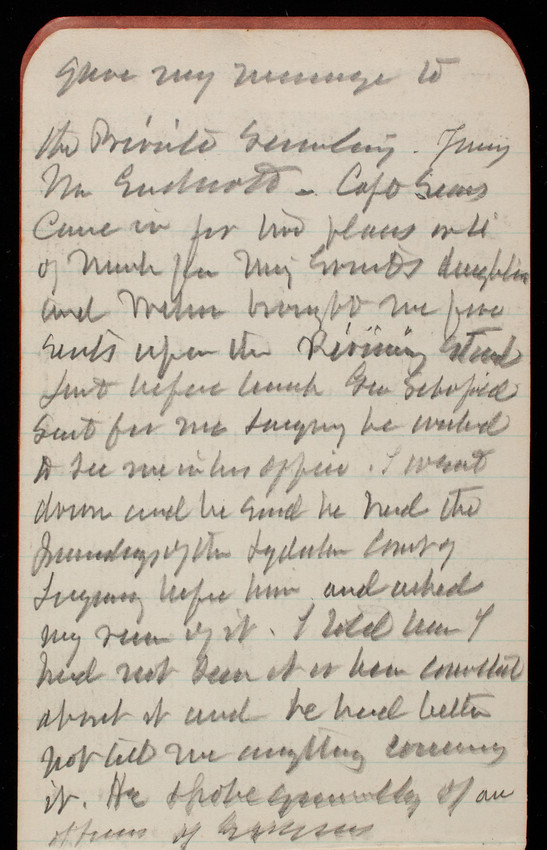 gave my message to
the Private Secretary. Jenny
Mr Endicott - Capt Sears
Came in for two places
of Miss daughter
and Wilson brought me five
seats upon the Reviewing stand
Just before lunch Gen Schofield
Sent for me saying he wanted
to see me in his office. I went
down and he said he had the
proceedings of the Lydecker Court of
Inquiry before him and asked
my view of it. I told him I
had not seen it or been consulted
about it and he had better
not tell me anything concerning
it. He spoke generally of an
of